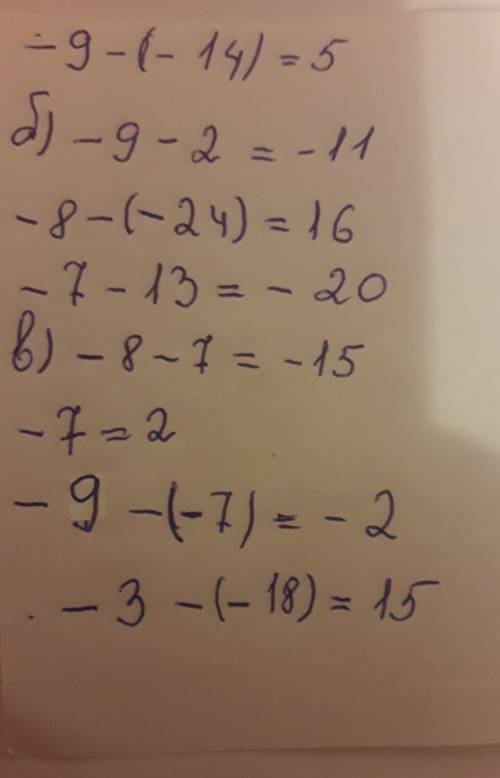 -9-(-14)=5
б) -9-2=-11
-8-(-24)=16
-7-13=-20
в) -8-7=-15
-7=2
-9-(-7)=-2
-3-(-18)=15